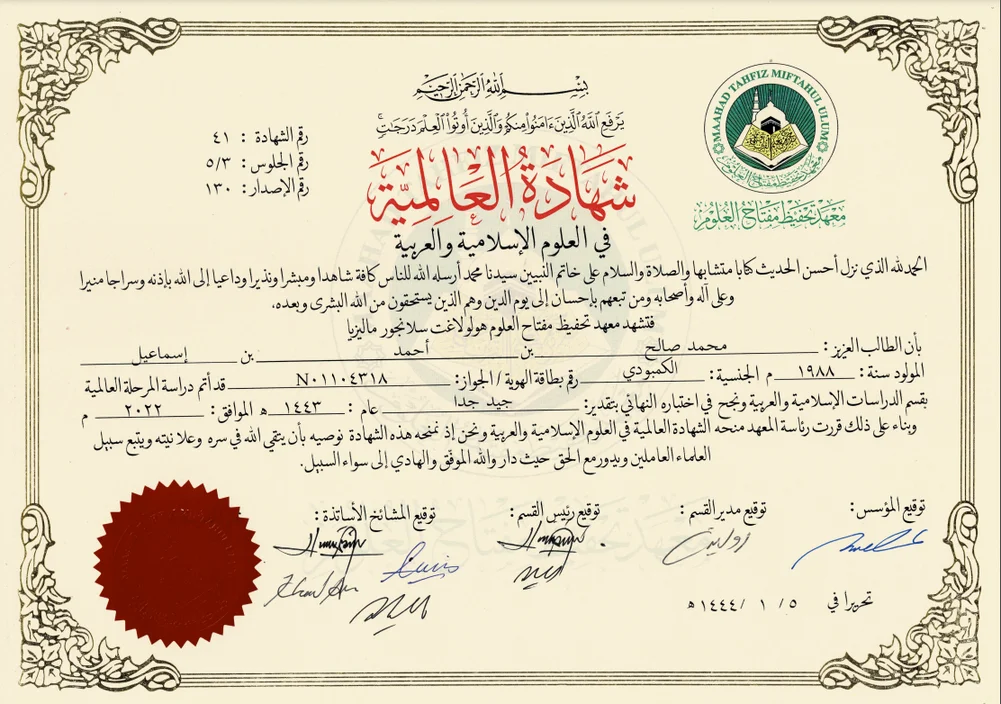 بسم الله الرحمن الرحيم
يرفع الله الذين ءامنوا منكم والذين أوتوا العلم درجات
MAAHAD TAHFIZ MIFTAHUL ULUM
معهد تحفيظ مفتاح العلوم
معهد تحفيظ مفتاح العلوم
رقم الشهادة : ٤١
رقم الجلوس : ٥/٣
رقم الإصدار: ١٣٠
شهادة العالمية
في العلوم الإسلامية والعربية
الحمد لله الذي نزل أحسن الحديث كتابا متشابها والصلاة والسلام على خاتم النبيين سيدنا محمد أرسله الله للناس كافة شاهدا ومبشرا ونذيرا وداعيا إلى الله بإذنه وسراجا منيرا
وعلى آله وأصحابه ومن تبعهم بإحسان إلى يوم الدين وهم الذين يستحقون من الله البشرى وبعده،
فتشهد معهد تحفيظ مفتاح العلوم هولو لاغت سلانجور ماليزيا
بأن الطالب العزيز: محمد صالح بن أحمد بن إسماعيل
المولود سنة: ١٩٨٨ م الجنسية: الكمبودي رقم بطاقة الهوية / الجواز: N٠١١٠٤٣١٨ قد أتم دراسة المرحلة العالمية
بقسم الدراسات الإسلامية والعربية ونجح في اختباره النهائي بتقدير: جيد جدا عام : ١٤٤٣ هـ الموافق: ٢٠٢٢ م
وبناء على ذلك قررت رئاسة المعهد منحه الشهادة العالمية في العلوم الإسلامية والعربية ونحن إذ نمنحه هذه الشهادة نوصيه بأن يتقي الله في سره وعلانيته ويتبع سبيل
العلماء العاملين ويدور مع الحق حيث دار والله الموفق والهادي إلى سواء السبيل.
توقيع المؤسس: توقيع مدير القسم: توقيع رئيس القسم: توقيع المشائخ الأساتذة:
تحريرا في ٥ / ١ / ١٤٤٤ هـ